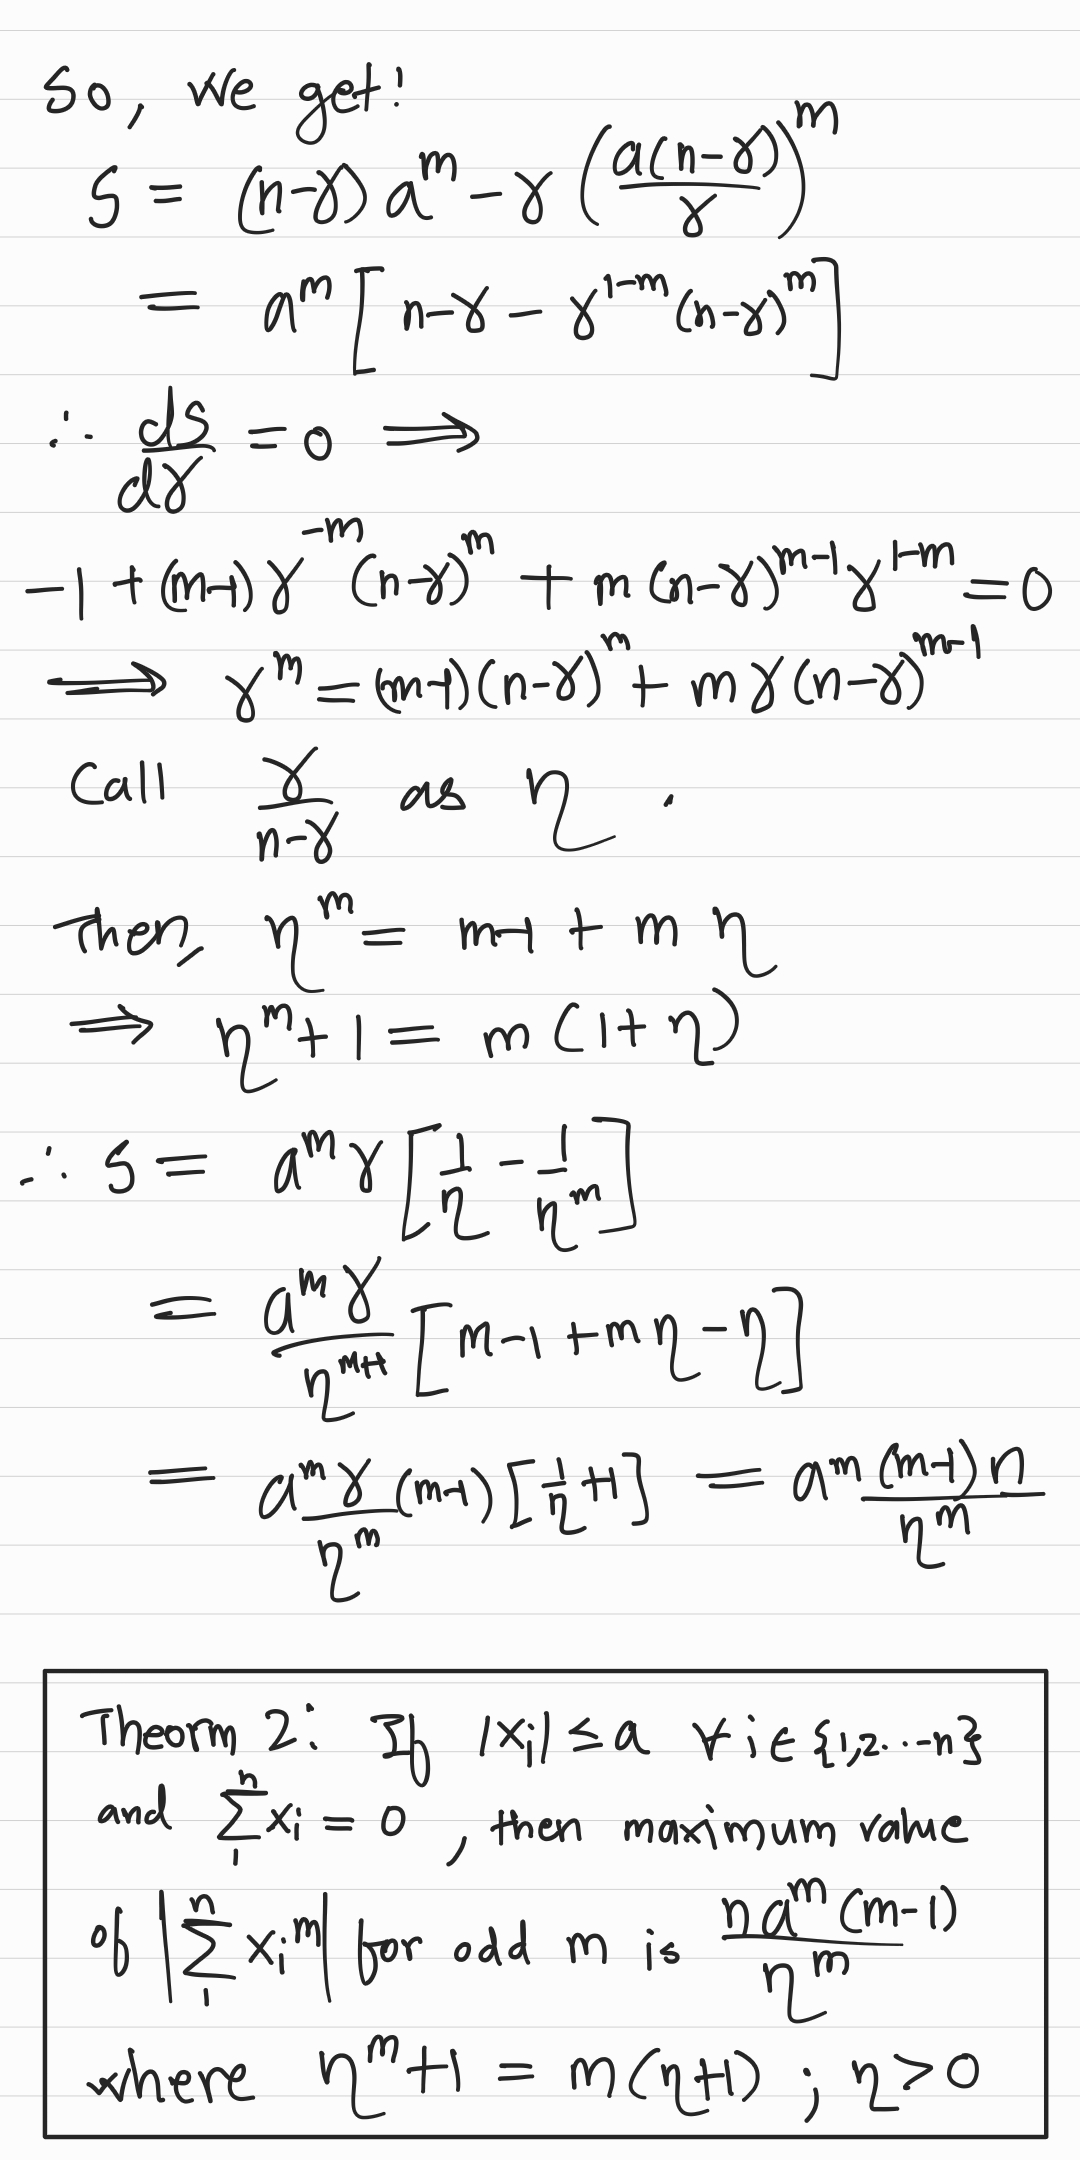 So, we get!
S = (n-γ) a^m - γ (a(n-γ)/γ)^m
= a^m [n-γ - γ^(1-m) (n-γ)^m]
∴ ds/dγ = 0 ⟹
-1 + (m-1) γ^(-m) (n-γ)^m + m (n-γ)^(m-1) γ^(1-m) = 0
⟹ γ^m = (m-1)(n-γ)^m + m γ (n-γ)^(m-1)
Call γ/(n-γ) as η .
Then, η^m = m-1 + m η
⟹ η^m + 1 = m (1+ η)
∴ S = a^m γ [1/η - 1/η^m]
= a^m γ / η^(m+1) [m-1 + m η - η]
= a^m γ / η^m (m-1) [1/η + 1] = a^m (m-1) n / η^m
Theorm 2: If |xi| ≤ a ∀ i ∈ {1,2...-n}
and ∑_1^n xi = 0 , then maximum value
of |∑_1^n xi^m| for odd m is n a^m (m-1) / η^m
where η^m + 1 = m(η+1) ; η > 0